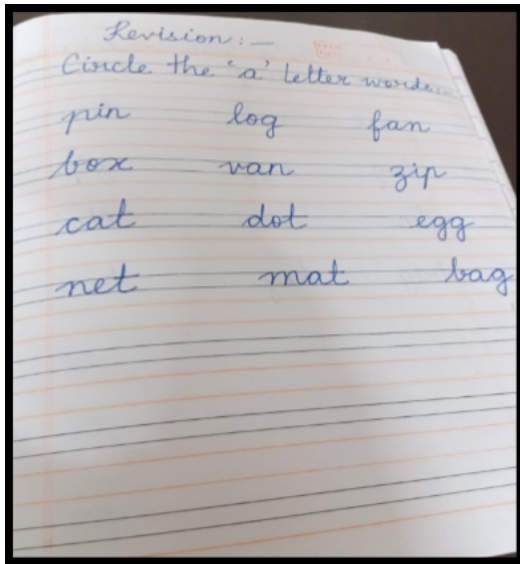 Revision :-
Circle the 'a' letter words:-
pin log fan
box van zip
cat dot egg
net mat bag